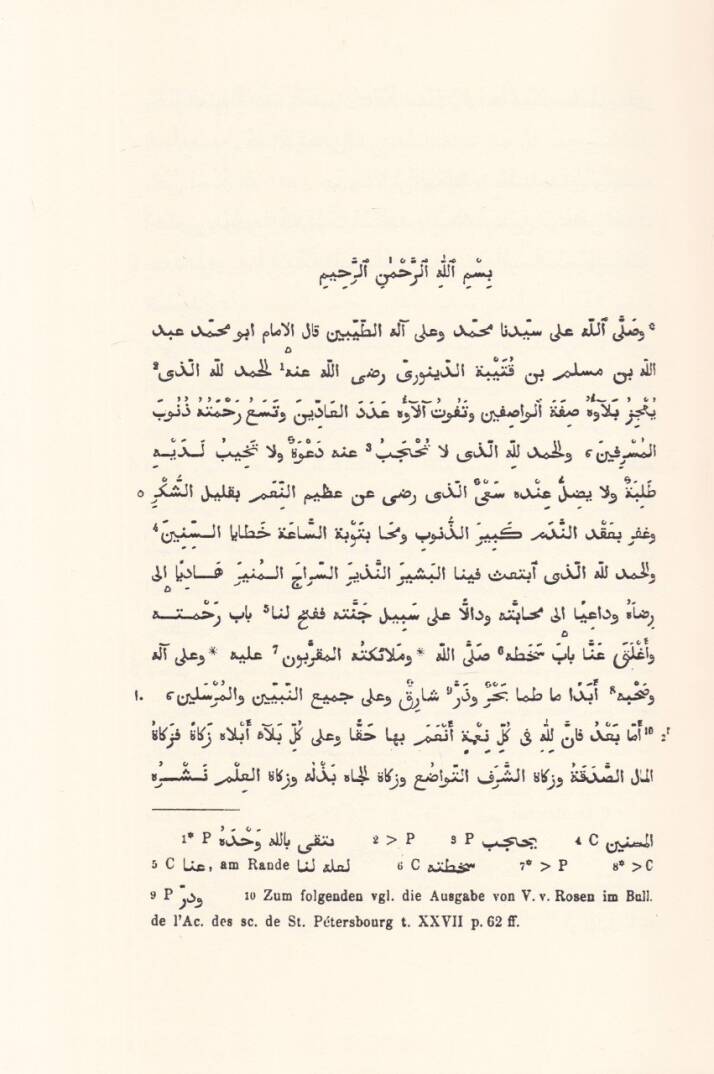 بِسْمِ ٱللّٰهِ ٱلرَّحْمٰنِ ٱلرَّحِيمِ
* وصَلَّى ٱللّه على سيّدنا محمّد وعلى آله الطيّبين قال الإمام ابو محمّد عبد
اللّه بن مسلم بن قُتَيْبة الدّينورىّ رضى اللّه عنه1 الحمد للّه الّذى2
يُعْجِزُ بَلَاؤُهُ صِفَةَ ٱلواصفين وتَفُوتُ آلَاؤُه عَدَدَ العَادِّينَ وتَسَعُ رَحْمَتُهُ ذُنُوبَ
المُسْرِفينَ، والحمد للّه الّذى لا تُحْتَجَبُ3 عنه دَعْوَةٌ ولا تَخِيبُ لَدَيْهِ
طَلِبَةٌ ولا يَضِلُّ عِنْده سَعْىٌ الّذى رضى عن عظيم النِّعَم بقليل الشُّكْرِ ٥
وغفر بعَقْد النَّدَم كَبِيرَ الذُّنوب ومَحَا بتَوْبة السَّاعَة خَطايا السِّنِينَ4
والحمد للّه الّذى ٱبتعث فينا البَشيرَ النَّذيرَ السِّراجَ المُنيرَ هَادِيًا إلى
رِضَاهُ وداعيًا إلى محابَّته ودالًّا على سَبِيل جَنَّته ففتح لنا5 باب رَحْمته
وأَغْلَقَ عَنَّا بابَ سَخَطه6 صَلَّى اللّه * وملائكتُه المقرَّبون7 عليه * وعلى آله
وصَحْبه8 أَبَدًا ما طما بَحْرٌ وذَرَّ9 شارِقٌ وعلى جميع النَّبيّين والمُرْسَلين، ١٠
10 أَمّا بَعْدُ فانَّ للّٰهِ فى كُلّ نِعْمةٍ أَنْعَمَ بها حَقًّا وعلى كُلّ بَلَآءٍ أَبْلاه زَكاةً فزَكاةُ
المال الصَّدَقَةُ وزكاة الشَّرَف التّواضُع وزكاة الجاه بَذْلُه وزكاة العِلْم نَشْرُهُ
1* P نتقى بالله وَحْدَهُ 2 > P 3 P يحتجب 4 C المسنين
5 C عنا, am Rande لعله لنا 6 C سخطته 7* > P 8* > C
9 P ودرّ 10 Zum folgenden vgl. die Ausgabe von V. v. Rosen im Bull.
de l'Ac. des sc. de St. Pétersbourg t. XXVII p. 62 ff.